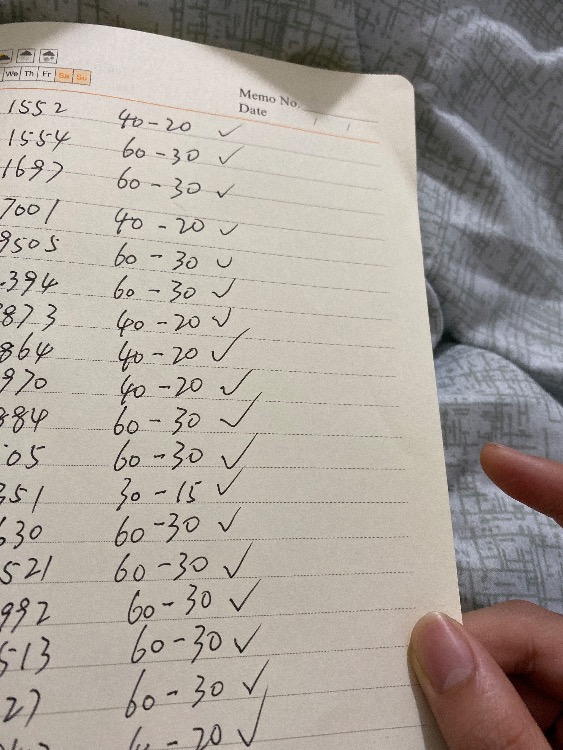 We Th Fr Sa Su
Memo No.
Date / /
1552 40-20 ✓
1554 60-30 ✓
1697 60-30 ✓
7001 40-20 ✓
9505 60-30 ✓
394 60-30 ✓
873 40-20 ✓
864 40-20 ✓
970 40-20 ✓
884 60-30 ✓
05 60-30 ✓
351 30-15 ✓
630 60-30 ✓
521 60-30 ✓
992 60-30 ✓
513 60-30 ✓
27 60-30 ✓
-20 ✓